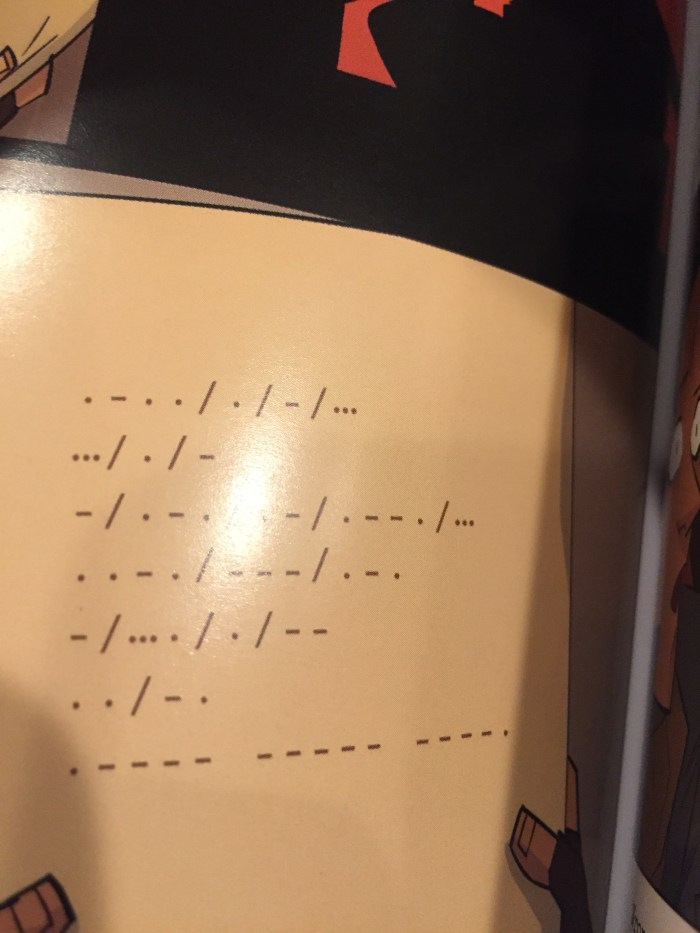 . - . . / . / - / ...
... / . / -
- / . - . / . - / . - - . / ...
. . - . / - - - / . - .
- / ... . / . / - -
. . / - .
. - - - - - - - - - - - - - .